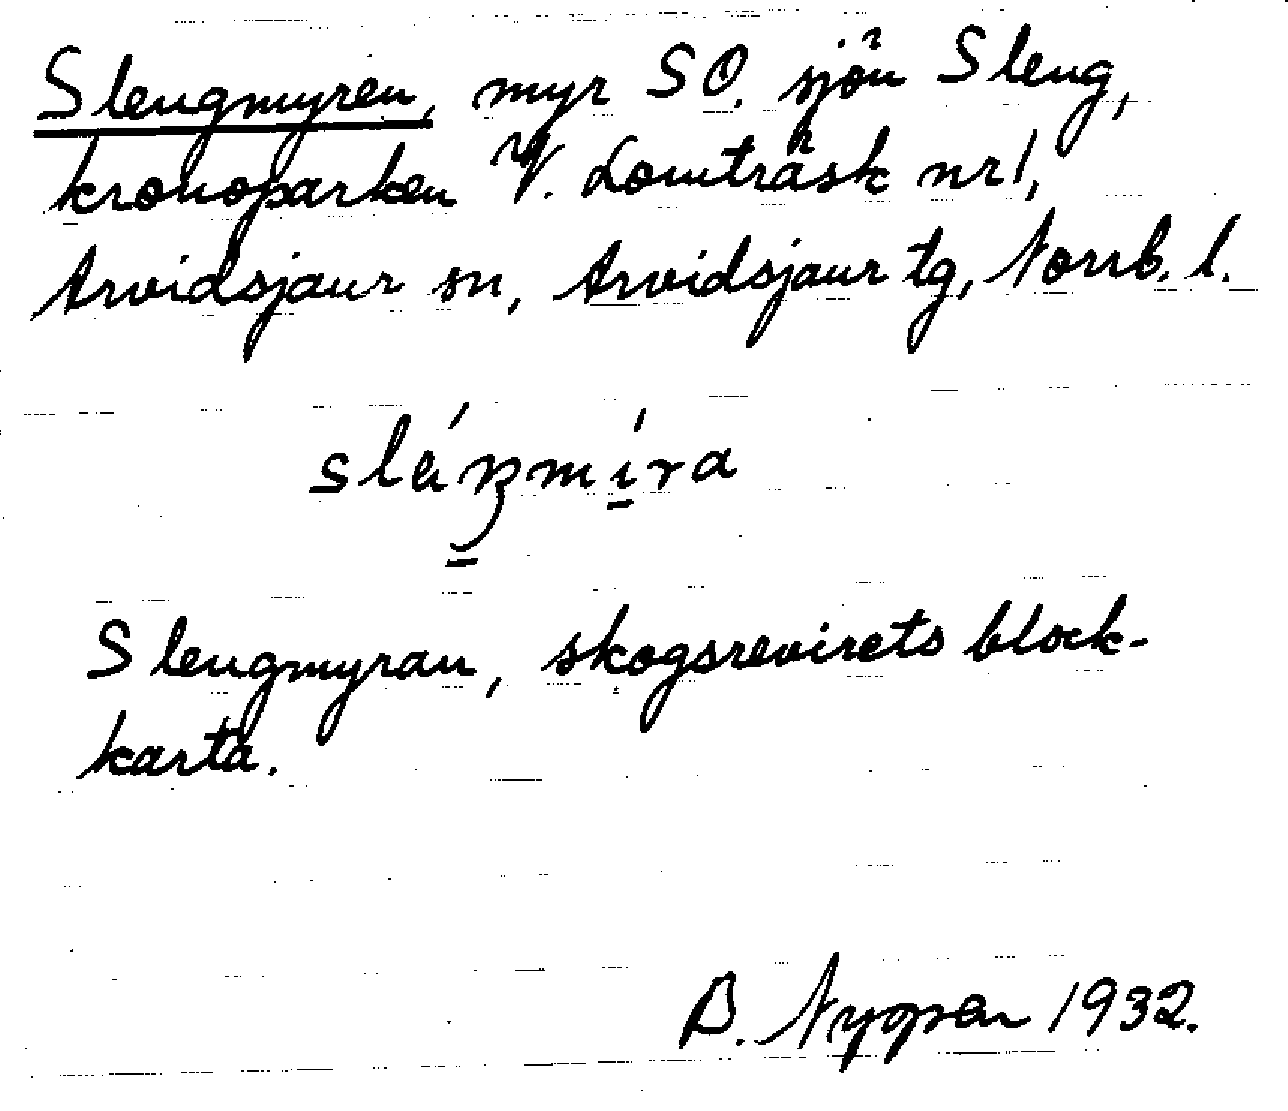 Slengmyren, myr SO. sjön Sleng,
kronoparken V. Lomträsk nr 1,
Arvidsjaur sn, Arvidsjaur tg, Norrb. l.
Slengmyran, skogsrevirets block-
karta.
B. Nyman 1932.